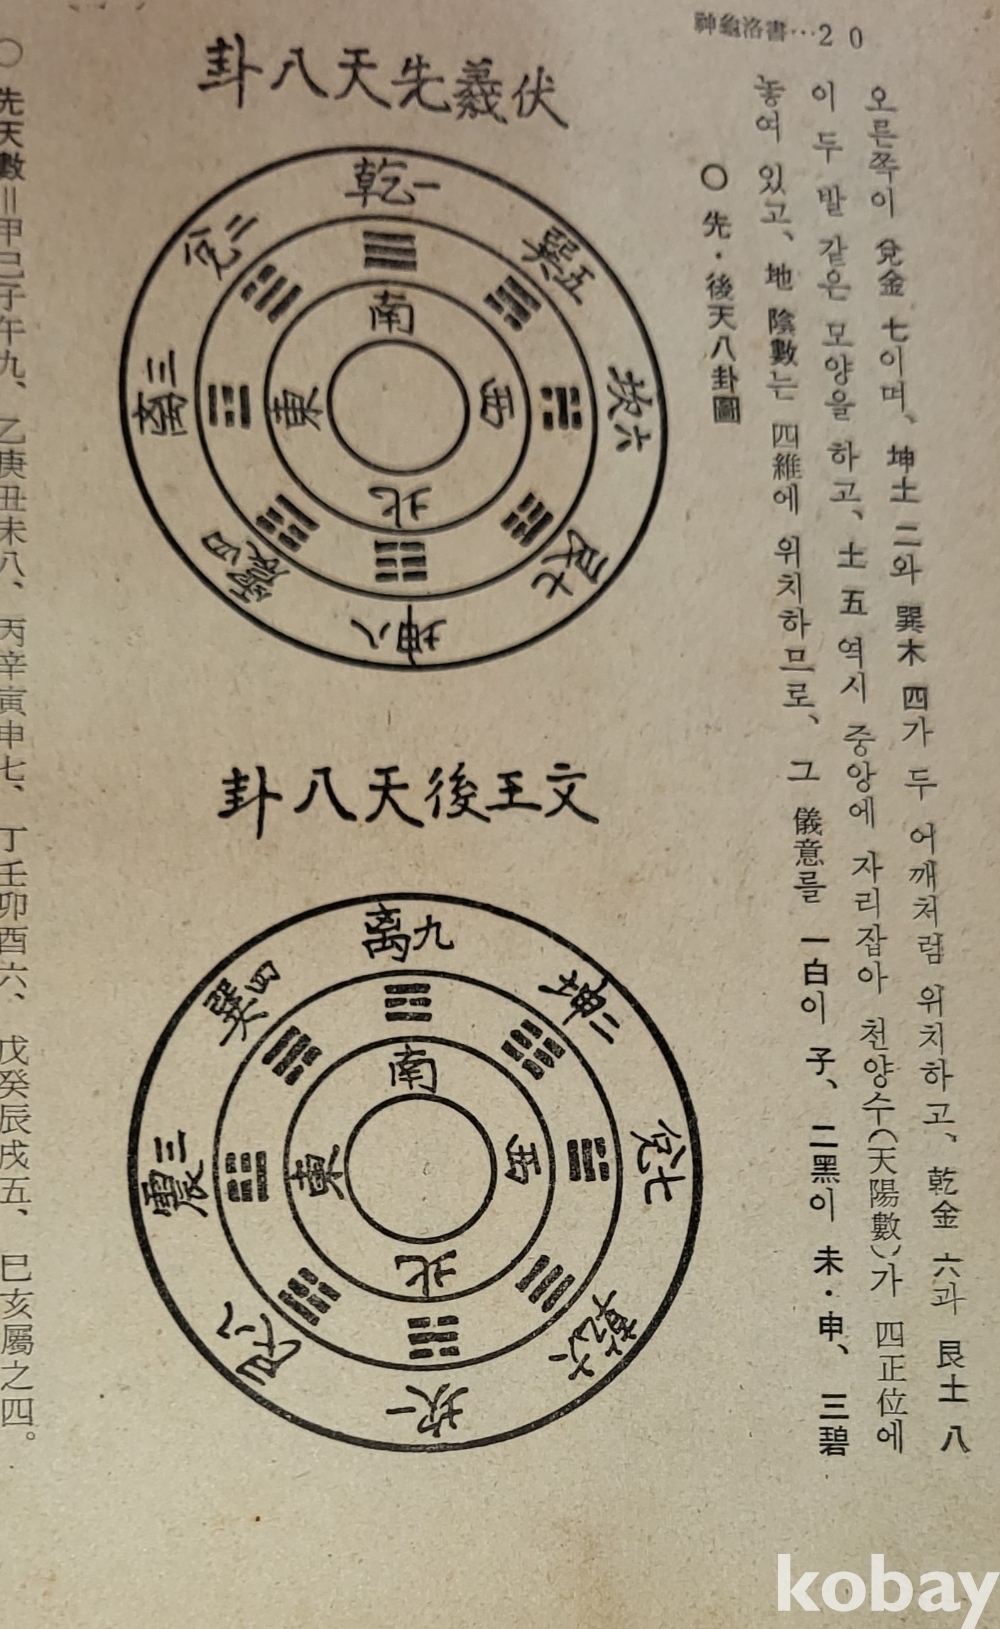 神龜洛書…20
오른쪽이 兌金 七이며、 坤土 二와 巽木 四가 두 어깨처럼 위치하고、 乾金 六과 艮土 八
이 두 발 같은 모양을 하고、 土 五 역시 중앙에 자리잡아 천양수(天陽數)가 四正位에
놓여 있고、 地 陰數는 四維에 위치하므로、 그 儀意를 一白이 子、 二黑이 未·申、 三碧
○ 先·後天八卦圖
伏羲先天八卦
乾一
巽五
坎六
艮七
坤八
震四
離三
兌二
南
西
北
東
文王後天八卦
离九
坤二
兌七
乾六
坎一
艮八
震三
巽四
南
西
北
東
○ 先天數=甲己子午九、 乙庚丑未八、 丙辛寅申七、 丁壬卯酉六、 戊癸辰戌五、 巳亥屬之四。
kobay